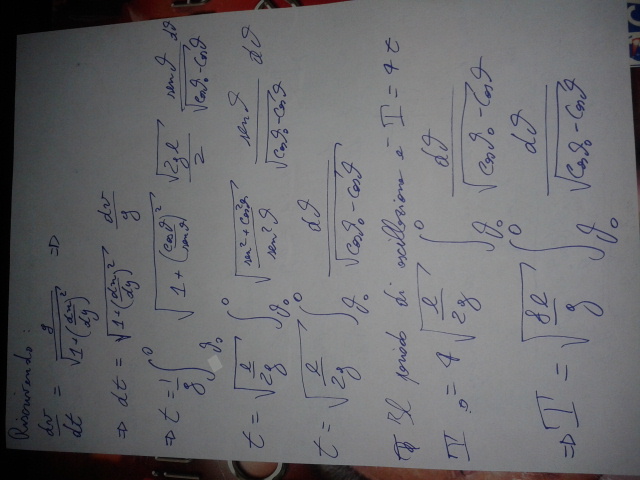 Riassumendo:
dv/dt = g/√(1+(dx/dy)²) ⇒
⇒ dt = √(1+(dx/dy)²) dv/g
⇒ t = 1/g ∫_ϑ₀^0 √(1+(cosϑ/senϑ)²) √(2gl)/2 senϑ/√(cosϑ₀-cosϑ) dϑ
t = √(l/2g) ∫_ϑ₀^0 √((sen²+cos²ϑ)/sen²ϑ) senϑ/√(cosϑ₀-cosϑ) dϑ
t = √(l/2g) ∫_ϑ₀^0 dϑ/√(cosϑ₀-cosϑ)
Il periodo di oscillazione è T = 4t
T = 4 √(l/2g) ∫_ϑ₀^0 dϑ/√(cosϑ₀-cosϑ)
⇒ T = √(8l/g) ∫_ϑ₀^0 dϑ/√(cosϑ₀-cosϑ)